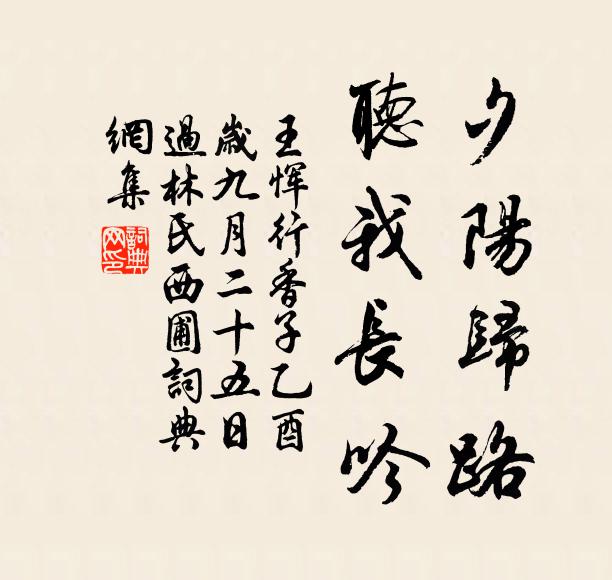 夕陽歸路
聽我長吟
王惲行香子乙酉
歲九月二十五日
過林氏西圃詞典
網集
詞典
网印